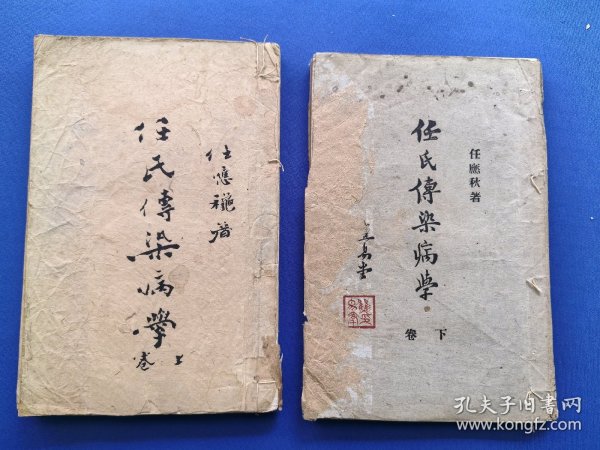 任氏傳染病學
卷上
任應穐著
任應秋著
任氏傳染病學
卷下
孔夫子旧書网
www.kongfz.com